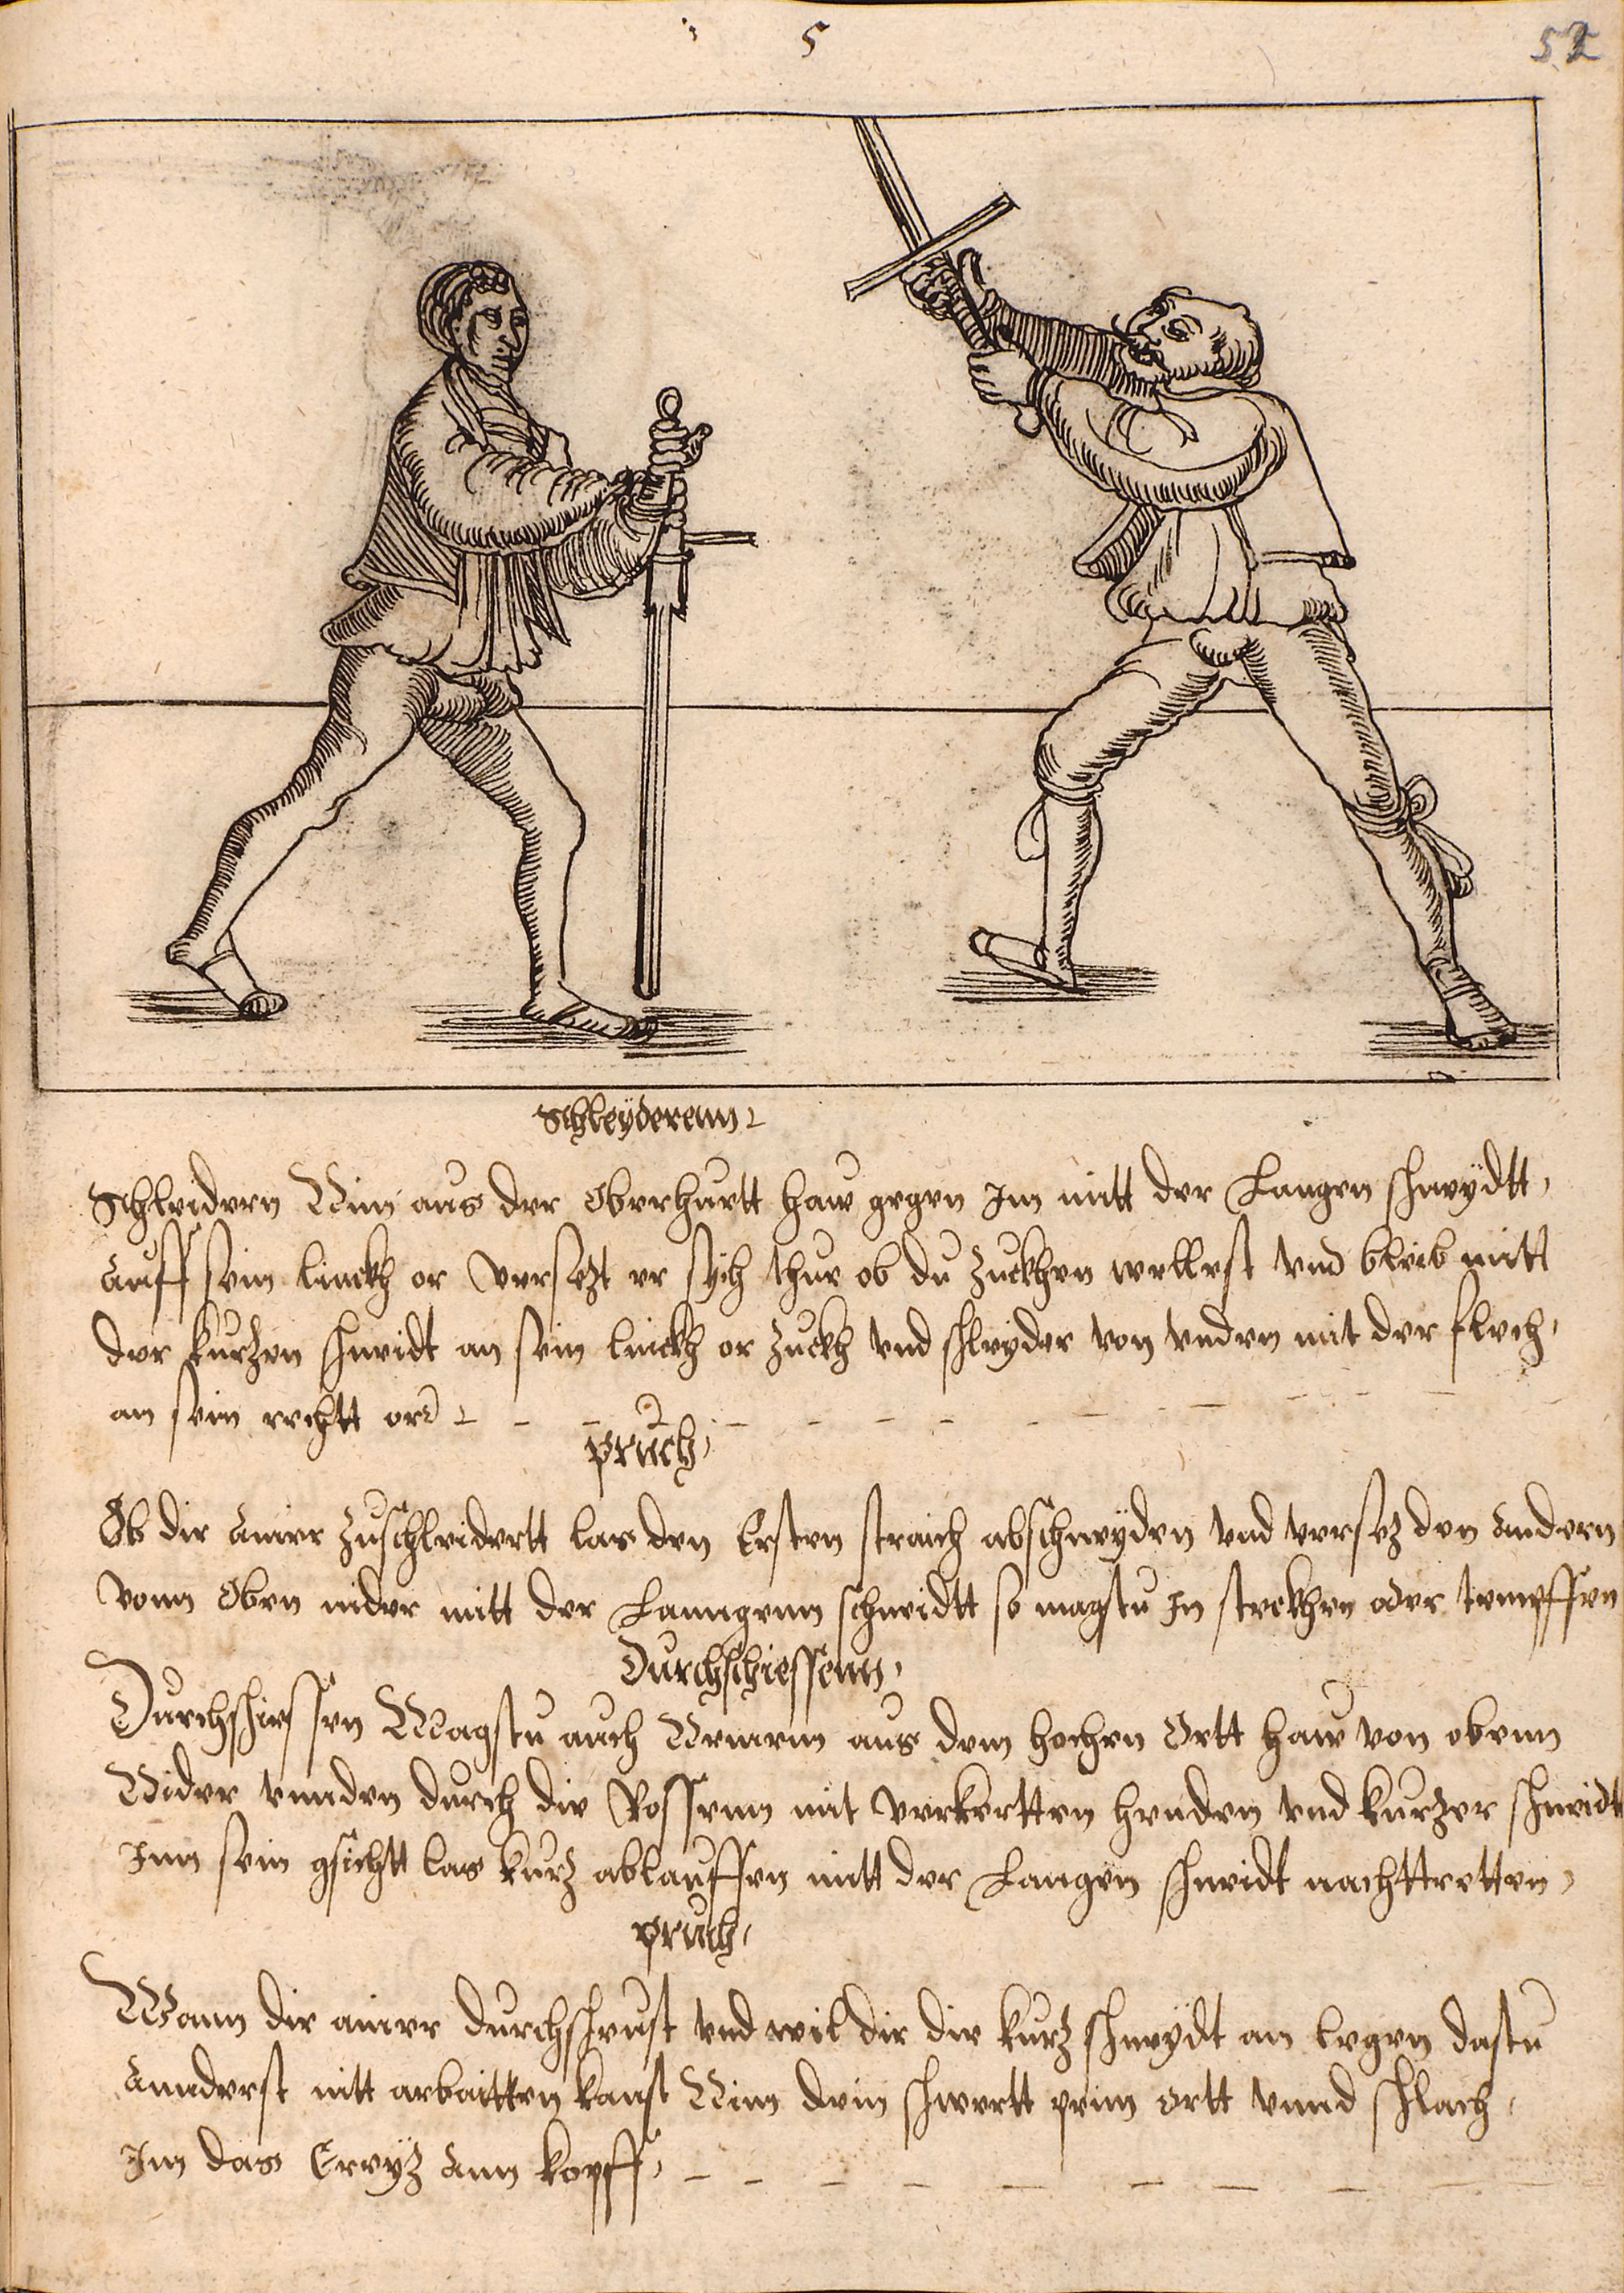 5
52
Schleÿderenn
Schleidern Nim aus der Oberhurtt haw gegen Im mitt der Langen schneÿdtt,
Auff sein linckh or versezt er sÿch thue ob du Zuckhen wellest vnd bleib mitt
der kurzen schneidt an sein linckh or Zuckh vnd schleÿder von vnden mit der flech,
an sein rechtt or
pruch,
Ob dir ainer Zuschleidertt las den Ersten straich abschneÿden vnd versez den andern
vonn Oben nider mitt der Lanngenn schneidtt so magstu In streckhen oder tempffen
Durchschiessenn,
Durchschiessen Magstu auch Nemenn aus dem hochen Ortt haw von obenn
Nider vnnden durch die Rossenn mit verkertten henden vnd kurzer schneidt
Inn sein gsichtt las kurz ablauffen mitt der Langen schneidt nachttretten,
pruch,
Wann dir ainer durchscheust vnd wil dir die kurz schneÿdt an legen dastu
Annderst nitt arbaitten kanst Nim dein schwertt peim ortt vnnd schlach,
Im das Creÿz Ann kopff,